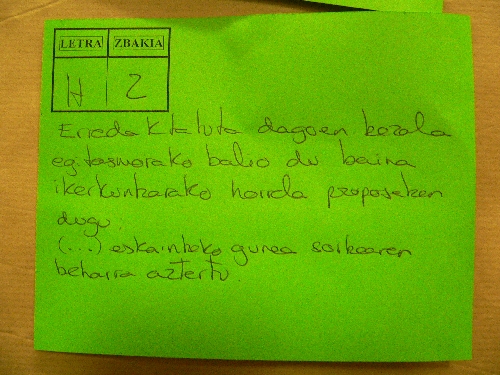 LETRA ZBAKIA
H 2
Erredaktatuta dagoen bezala
egitasmorako balio du baina
ikerkuntzarako horrela proposatzen
dugu.
(...) eskainitako gunea sortzearen
beharra aztertu.